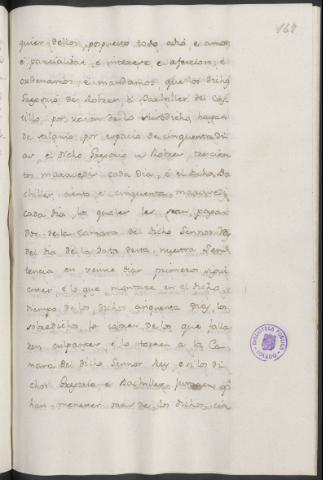 168
quier dellos, pospuesto todo odio e amor,
é parcialidad, é interese e afeccion, é
ordenamos, é mandamos que los dichos
Gregorio de Robres, é Bachiller del Cas-
tillo, por razon de lo susodicho, hayan
de salario por espacio de cinquenta di-
as, el dicho Gregorio de Robres trecien-
tos maravedis cada dia, é el dicho Ba-
chiller ciento e cinquenta maravedis
cada dia, los quales les sean paga-
dos de la Camara del dicho Sennor Rey
del dia de la data desta nuestra Sen-
tencia en nueve dias primeros sigui-
entes, e lo que montare en el dicho
tiempo de los dichos cinquenta dias, los
sobredichos, lo cobren de los que falla-
ren culpantes e lo tornen a la Ca-
mara del dicho Sennor Rey, e si los di-
chos Gregorio é Bachiller, juraren que
han menester mas de los dichos cin
BIBLIOTECA PUBLICA
TOLEDO